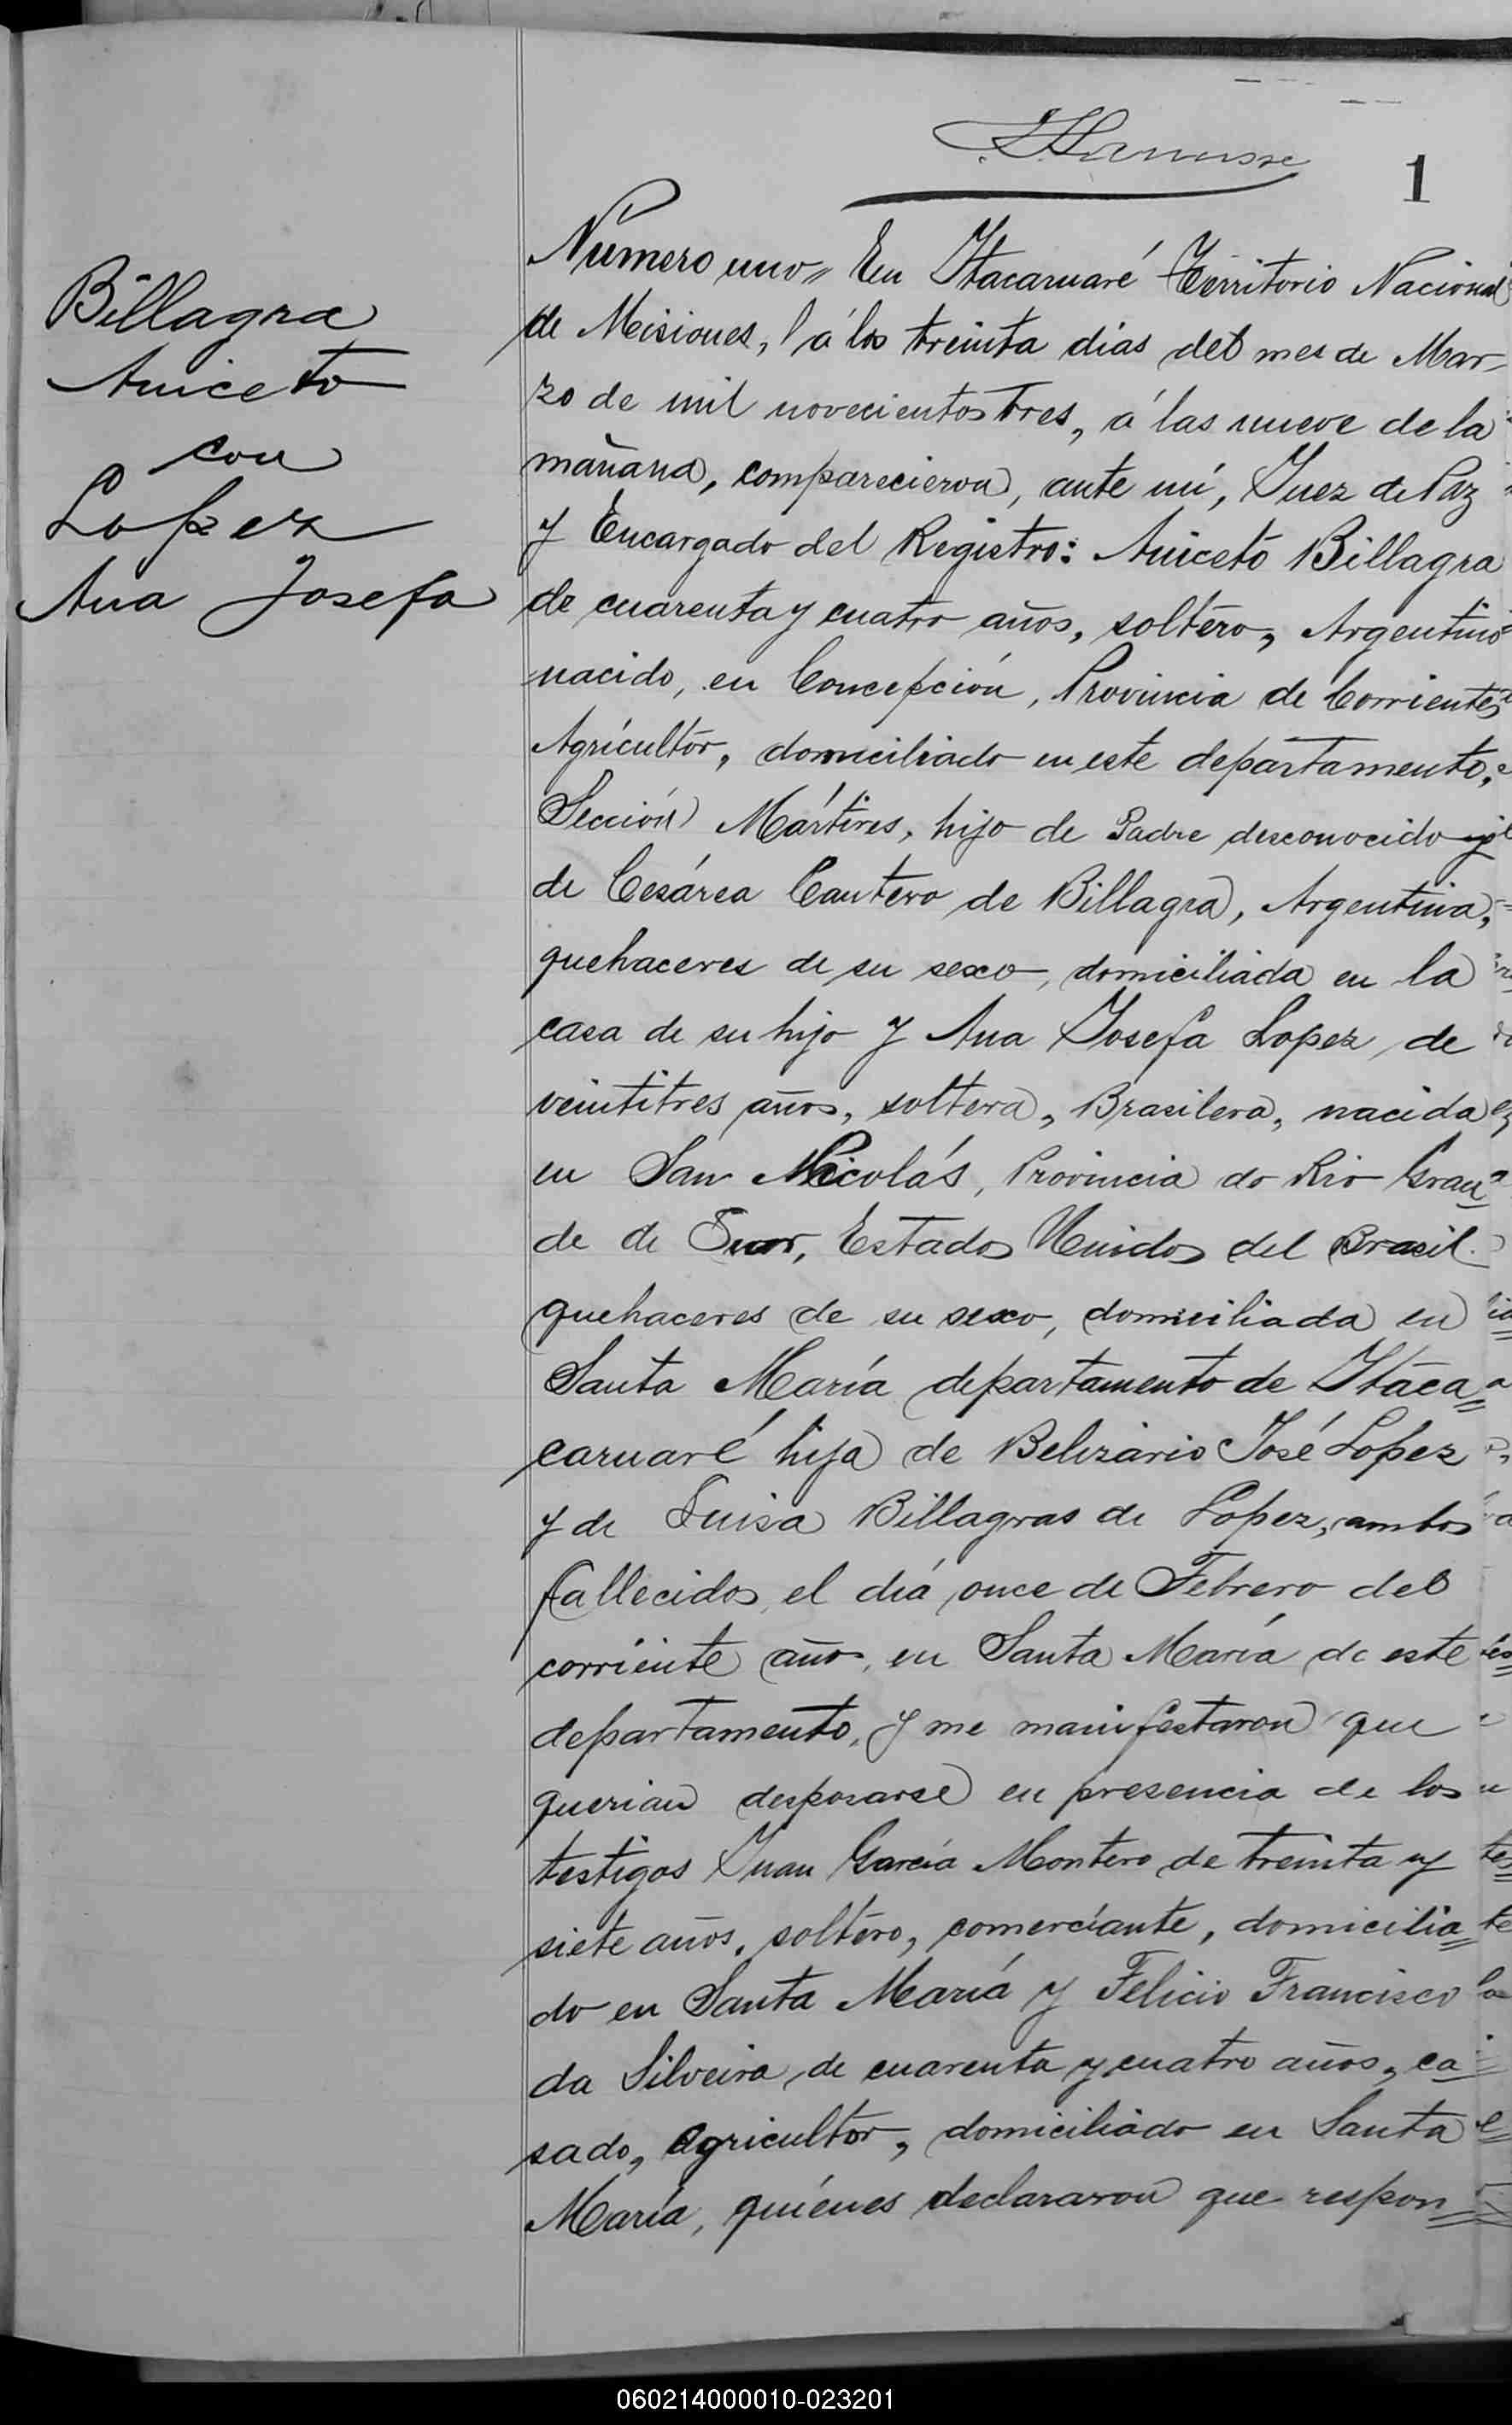 1
Billagra
Aniceto
con
Lopez
Ana Josefa
Número uno,, En Itacaruaré Territorio Nacional
de Misiones, á los treinta dias del mes de Mar-
zo de mil novecientos tres, á las nueve de la
mañana, comparecieron, ante mí, Juez de Paz
y Encargado del Registro: Aniceto Billagra
de cuarenta y cuatro años, soltero, Argentino
nacido, en Concepción, Provincia de Corrientes
Agricultor, domiciliado en este departamento,
Sección Mártires, hijo de Padre desconocido y
de Cesárea Cantero de Billagra, Argentina,
quehaceres de su sexo, domiciliada en la
casa de su hijo y Ana Josefa Lopez de
veintitres años, soltera, Brasilera, nacida
en San Nicolás, Provincia do Rio Gran=
de de Suor, Estados Unidos del Brasil.
quehaceres de su sexo, domiciliada en
Santa María departamento de Itaca=
caruaré hija de Belizário José Lopez
y de Luisa Billagras de Lopez, ambos
fallecidos, el día once de Febrero del
corriente año, en Santa María de este
departamento, y me manifestaron que
querian desposarse en presencia de los
testigos Juan García Montero de treinta y
siete años, soltero, comerciante, domicilia=
do en Santa María y Felicio Francisco
da Silveira, de cuarenta y cuatro años, ca=
sado, agricultor, domiciliado en Santa
María, quiénes declararon que respon=
060214000010-023201